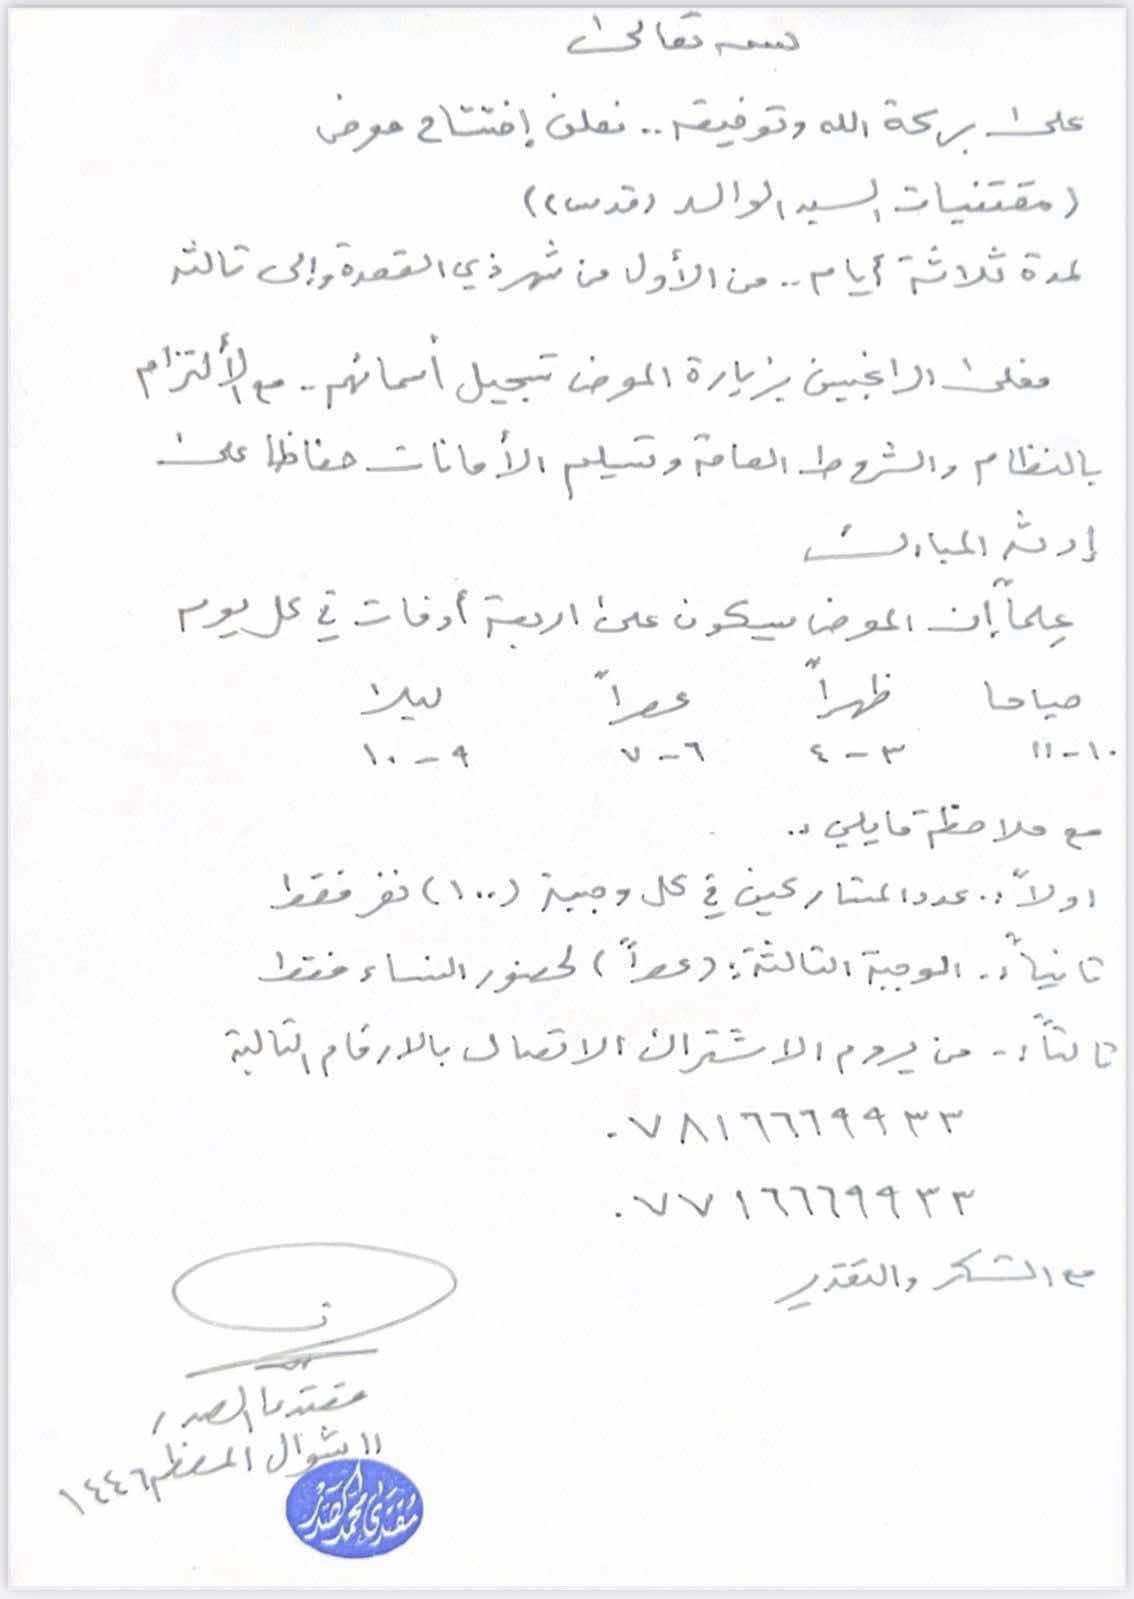 بسمه تعالى
على بركة الله وتوفيقه .. نعلن إفتتاح معرض
(مقتنيات السيد الوالد (قدس))
لمدة ثلاثة أيام .. من الأول من شهر ذي القعدة وإلى ثالثه
فعلى الراغبين بزيارة المعرض تسجيل أسمائهم .. مع الألتزام
بالنظام والشروط العامة وتسليم الأمانات حفاظا على
إرثه المبارك
عِلماً إن المعرض سيكون على اربعة أوقات في كل يوم
صباحا ظهراً عصراً ليلا
١٠-١١ ٣-٤ ٦-٧ ٩-١٠
مع ملاحظة مايلي ..
اولاً :. عدد المشاركين في كل وجبة (١٠٠) نفر فقط
ثانياً :. الوجبة الثالثة: (عصراً) لحضور النساء فقط
ثالثاً :. من يروم الاشتراك الاتصال بالارقام التالية
٠٧٨١٦٦٦٩٩٣٣
٠٧٧١٦٦٦٩٩٣٣
مع الشكر والتقدير
مقتدى الصدر
١١ شوال المعظم ١٤٤٦
مقتدى محمد الصدر